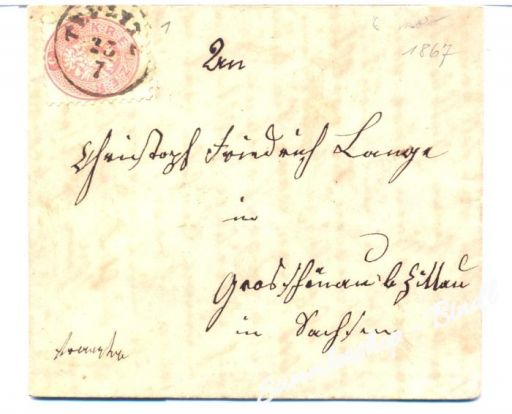 23
7
1
1867
An
Christoph Friedrich Lange
in
Grosschönau b Zittau
in Sachsen